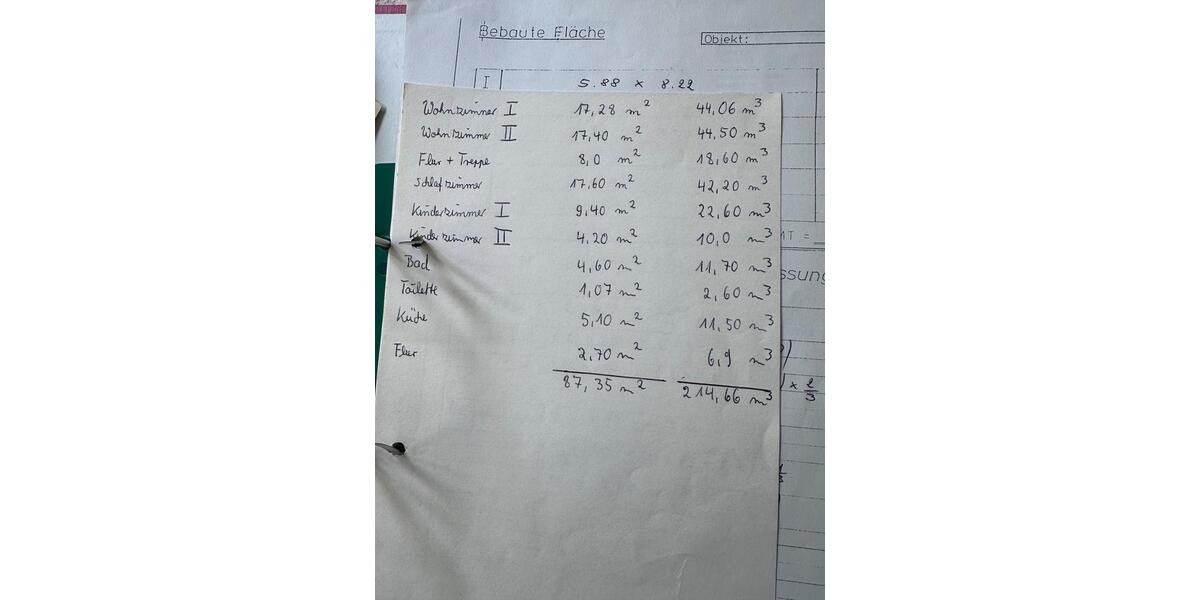 Bebaute Fläche
Objekt:
I 5.88 x 8.22
Wohnzimmer I 17,28 m² 44,06 m³
Wohnzimmer II 17,40 m² 44,50 m³
Flur + Treppe 8,0 m² 18,60 m³
Schlafzimmer 17,60 m² 42,20 m³
Kinderzimmer I 9,40 m² 22,60 m³
MT =
Kinderzimmer II 4,20 m² 10,0 m³
Bad 4,60 m² 11,70 m³
ssung
Toilette 1,07 m² 2,60 m³
Küche 5,10 m² 11,50 m³
Flur 2,70 m² 6,9 m³
87,35 m² 214,66 m³
x 2/3